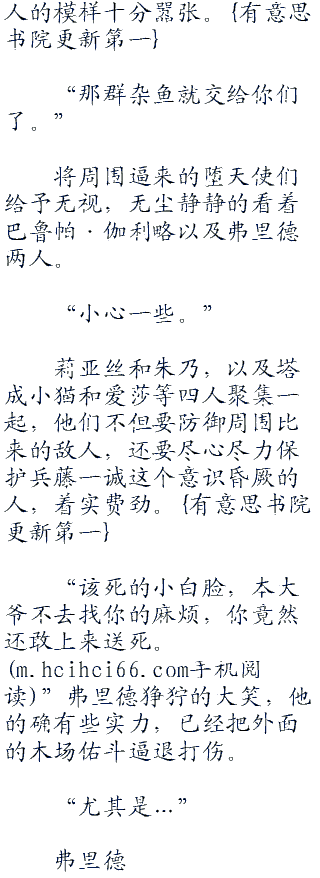 人的模样十分嚣张。{有意思
书院更新第一}
“那群杂鱼就交给你们
了。”
将周围逼来的堕天使们
给予无视，无尘静静的看着
巴鲁帕·伽利略以及弗里德
两人。
“小心一些。”
莉亚丝和朱乃，以及塔
成小猫和爱莎等四人聚集一
起，他们不但要防御周围比
来的敌人，还要尽心尽力保
护兵藤一诚这个意识昏厥的
人，着实费劲。{有意思书院
更新第一}
“该死的小白脸，本大
爷不去找你的麻烦，你竟然
还敢上来送死。
(m.hcihci66.com手机阅
读)”弗里德狰狞的大笑，他
的确有些实力，已经把外面
的木场佑斗逼退打伤。
“尤其是…”
弗里德